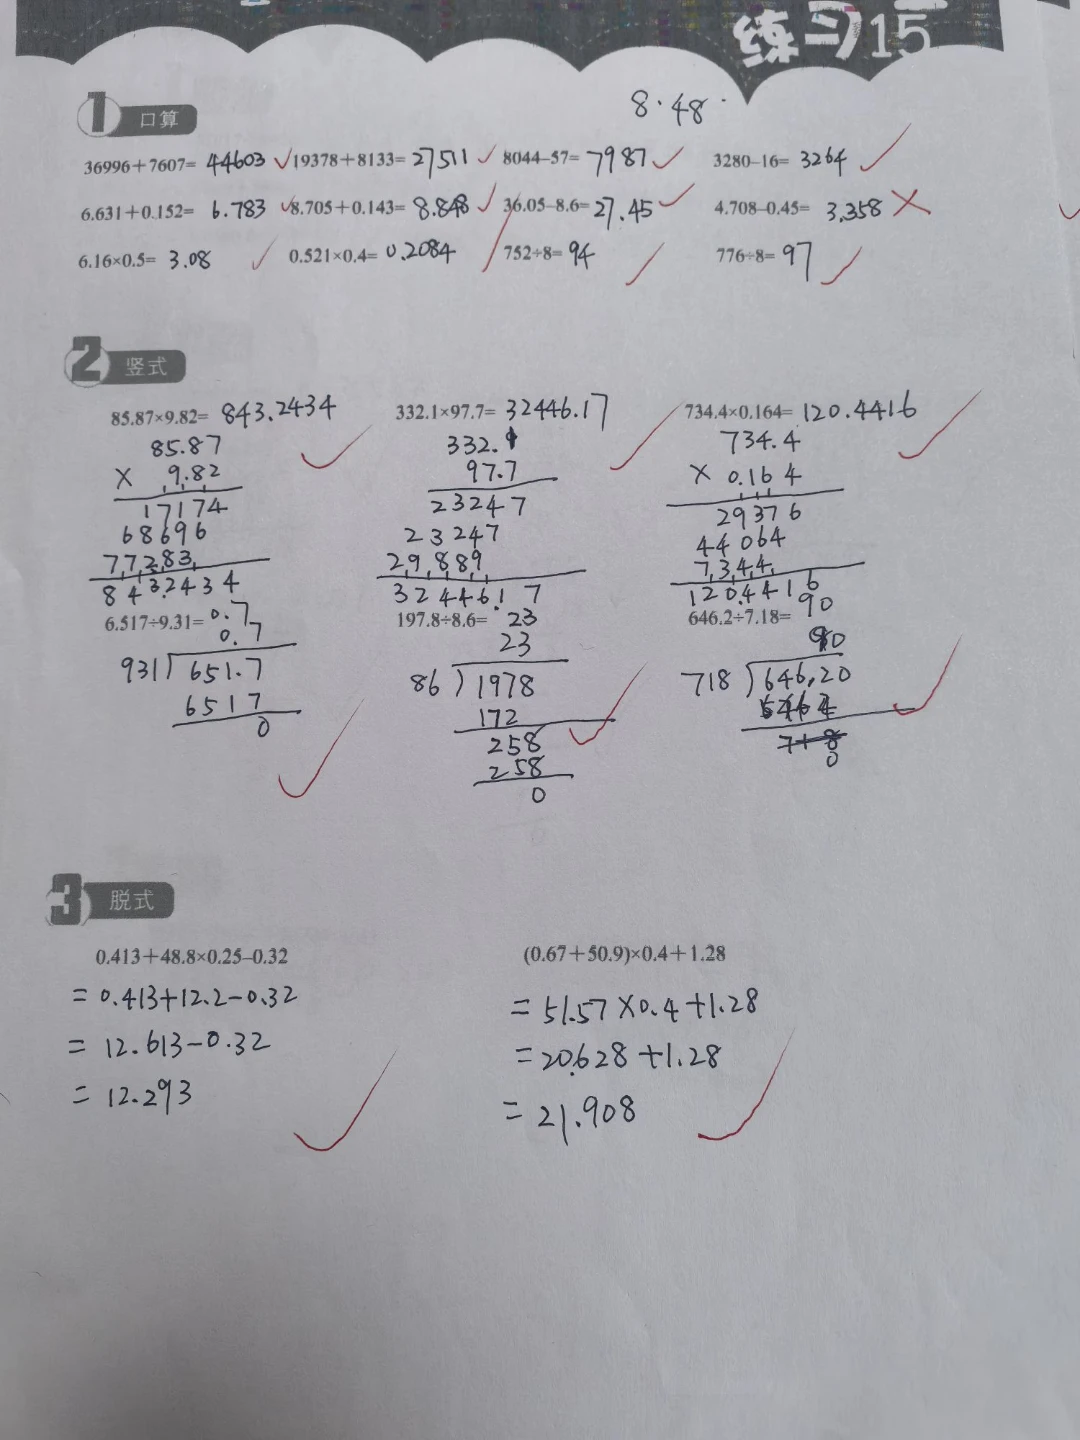 练习15
8.48
1 口算
36996+7607= 44603 19378+8133= 27511 8044–57= 7987 3280–16= 3264
6.631+0.152= 6.783 8.705+0.143= 8.848 36.05–8.6= 27.45 4.708–0.45= 3.358
6.16×0.5= 3.08 0.521×0.4= 0.2084 752÷8= 94 776÷8= 97
2 竖式
85.87×9.82= 843.2434 332.1×97.7= 32446.17 734.4×0.164= 120.4416
85.87 332.1 734.4
× 9.82 97.7 × 0.164
17174 23247 29376
68696 23247 44064
77283 29889 7344
843.2434 32446.17 120.4416
6.517÷9.31= 0.7 197.8÷8.6= 23 646.2÷7.18= 90
0.7 23 90
931 651.7 86 1978 718 646.20
6517 172
0 258 718
258 0
0
3 脱式
0.413+48.8×0.25–0.32 (0.67+50.9)×0.4+1.28
=0.413+12.2-0.32 =51.57×0.4+1.28
=12.613-0.32 =20.628+1.28
=12.293 =21.908